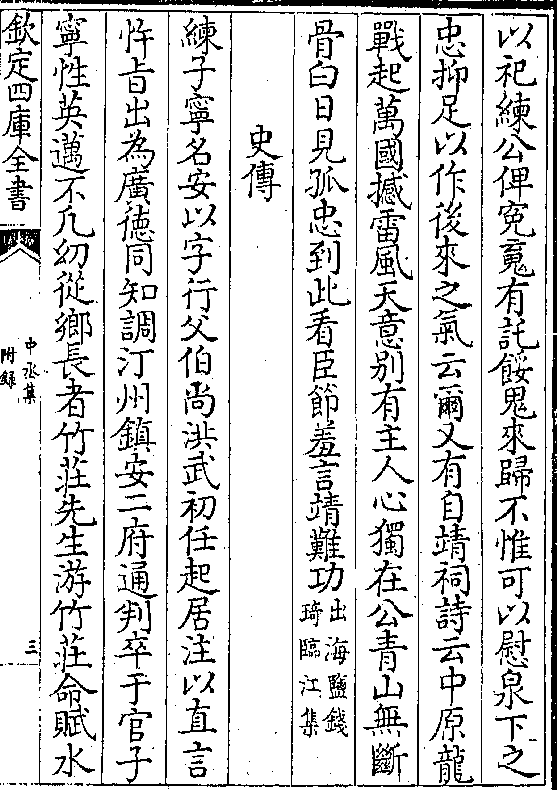 以祀練公俾寃䰟有託餒鬼來歸不惟可以慰泉下之
忠抑足以作後來之氣云爾又有自靖祠詩云中原龍
戰起萬國撼雷風天意别有主人心獨在公青山無斷
骨白日見孤忠到此看臣節羞言靖難功出海鹽錢
琦臨江集
史傳
練子寧名安以字行父伯尚洪武初任起居注以直言
忤㫖出為廣徳同知調汀州鎮安二府通判卒于官子
寧性英邁不凡幼從鄉長者竹莊先生游竹莊命賦水
欽定四庫全書
中丞集
附録
三